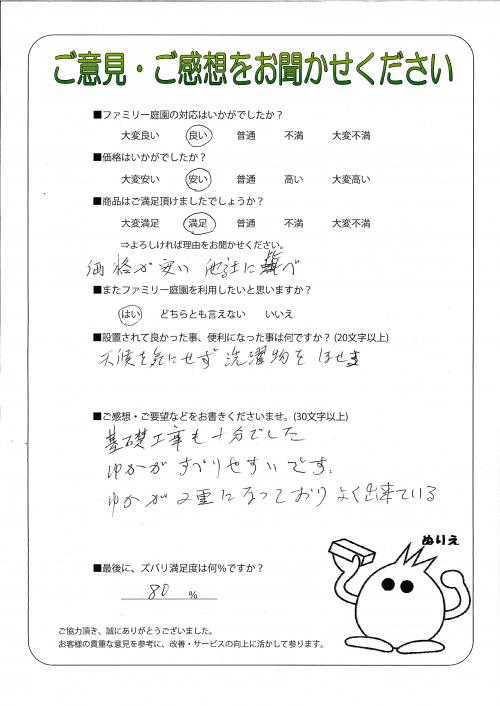 ご意見・ご感想をお聞かせください
■ファミリー庭園の対応はいかがでしたか？
大変良い 良い 普通 不満 大変不満
■価格はいかがでしたか？
大変安い 安い 普通 高い 大変高い
■商品はご満足頂けましたでしょうか？
大変満足 満足 普通 不満 大変不満
⇒よろしければ理由をお聞かせください。
価格が安い 他社に比べ
■またファミリー庭園を利用したいと思いますか？
はい どちらとも言えない いいえ
■設置されて良かった事、便利になった事は何ですか？(20文字以上)
天候を気にせず洗濯物をほせます
■ご感想・ご要望などをお書きくださいませ。(30文字以上)
基礎工事も十分でした
ゆかがすべりやすいです.
ゆかが2重になっておりよく出来ている
ぬりえ
■最後に、ズバリ満足度は何％ですか？
80 %
ご協力頂き、誠にありがとうございました。
お客様の貴重な意見を参考に、改善・サービスの向上に活かして参ります。